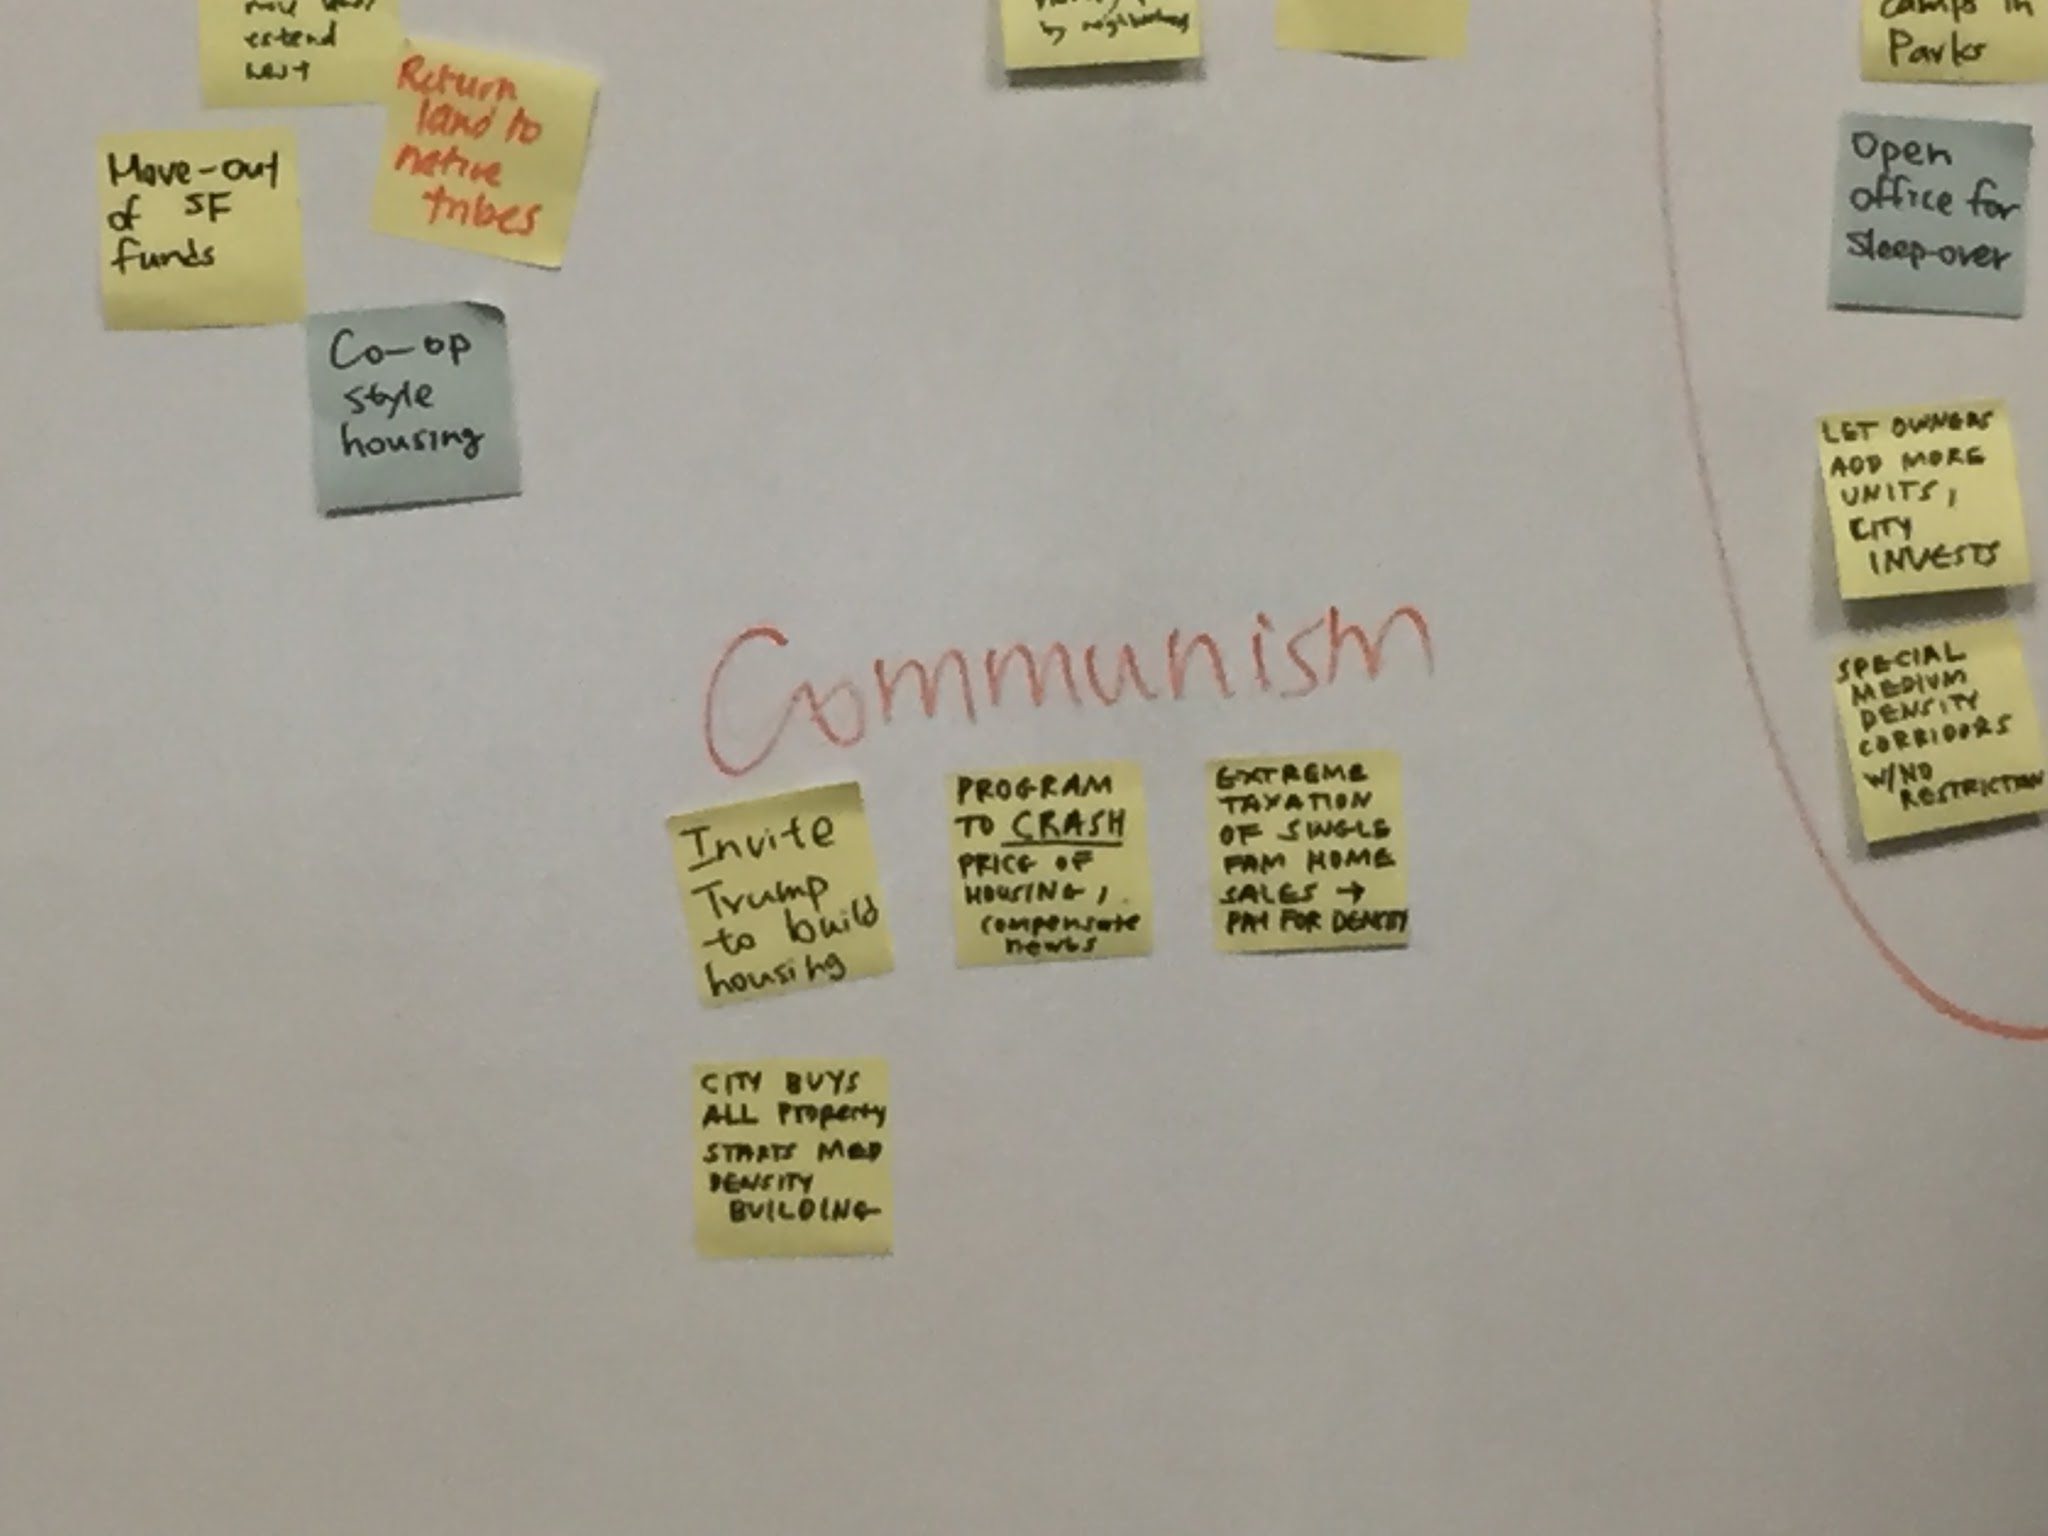 extend
Return
land to
native
tribes
Move-out
of SF
funds
Co-op
style
housing
by neighborhood
camps in
Parks
Open
office for
Sleep-over
LET OWNERS
ADD MORE
UNITS,
CITY
INVESTS
SPECIAL
MEDIUM
DENSITY
CORRIDORS
W/NO
RESTRICTION
Communism
Invite
Trump
to build
housing
PROGRAM
TO CRASH
PRICE OF
HOUSING,
compensate
newbs
EXTREME
TAXATION
OF SINGLE
FAM HOME
SALES →
PAY FOR DENSITY
CITY BUYS
ALL Property
STARTS MED
DENSITY
BUILDING